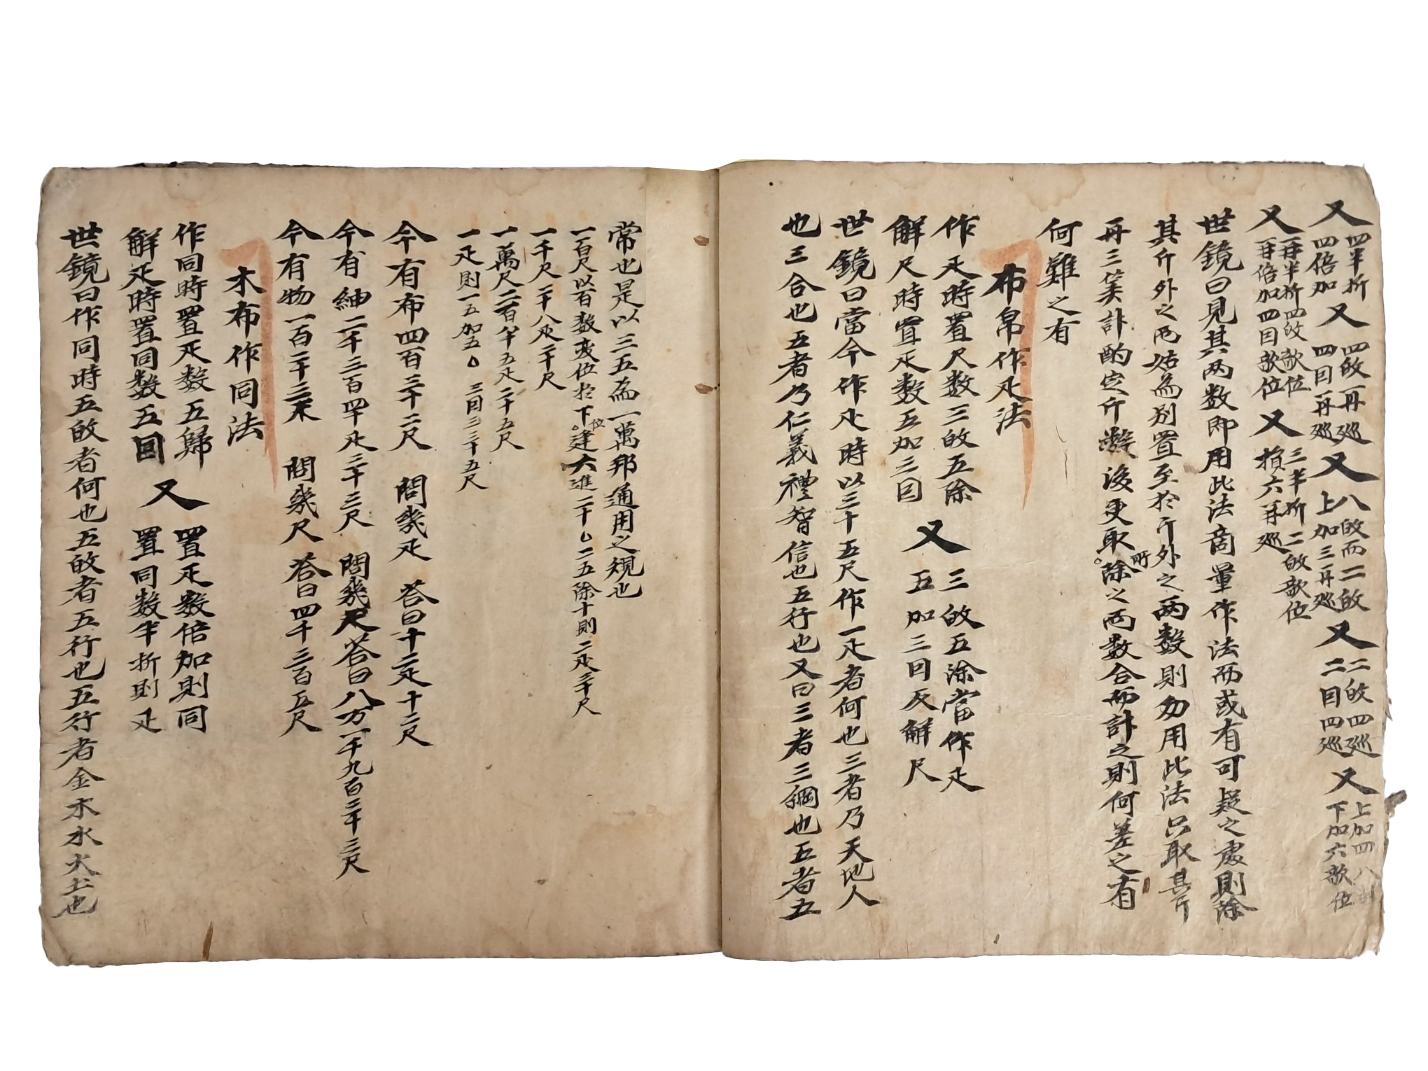 又 四半折 四倍加 又 四㪴一再巡 四回再巡 又 八㪴而二㪴 上加三再巡 又 二㪴四巡 二回四巡 又 上加四八 下加六㪴位
又 再半折四㪴㪴位 再倍加四回㪴位 又 三半折二㪴㪴位 損六再巡
世鏡曰見其两数即用此法商量作法而或有可疑之處則除
其斤外之两姑爲別置至於斤外之两数則勿用此法只取其斤
再三筭計酌定斤數後更取所除之两数合而計之則何差之有
何難之有
布帛作疋法
作疋時置尺数三㪴五除 又 三㪴五除當作疋
解尺時置疋数五加三回 五加三回反解尺
世鏡曰當今作疋時以三十五尺作一疋者何也三者乃天地人
也三合也五者乃仁義禮智信也五行也又曰三者三綱也五者五
常也是以三五爲一萬邦通用之規也
一百尺以百数変位於下位逢六進二十五除十則二疋三十尺
一千尺二十八疋二十尺
一萬尺二百八十五疋二十五尺
一疋則一五加五 三回三三十五尺
今有布四百三十二尺 問幾疋 答曰十二疋十二尺
今有紬二千三百四十疋三十三尺 問幾尺 答曰八万一千九百三十三尺
今有物一百二十三疋 問幾尺 答曰四千三百五尺
木布作同法
作同時置疋数五歸 又 置疋数倍加則同
解疋時置同数五回 置同数半折則疋
世鏡曰作同時五㪴者何也五㪴者五行也五行者金木水火土也